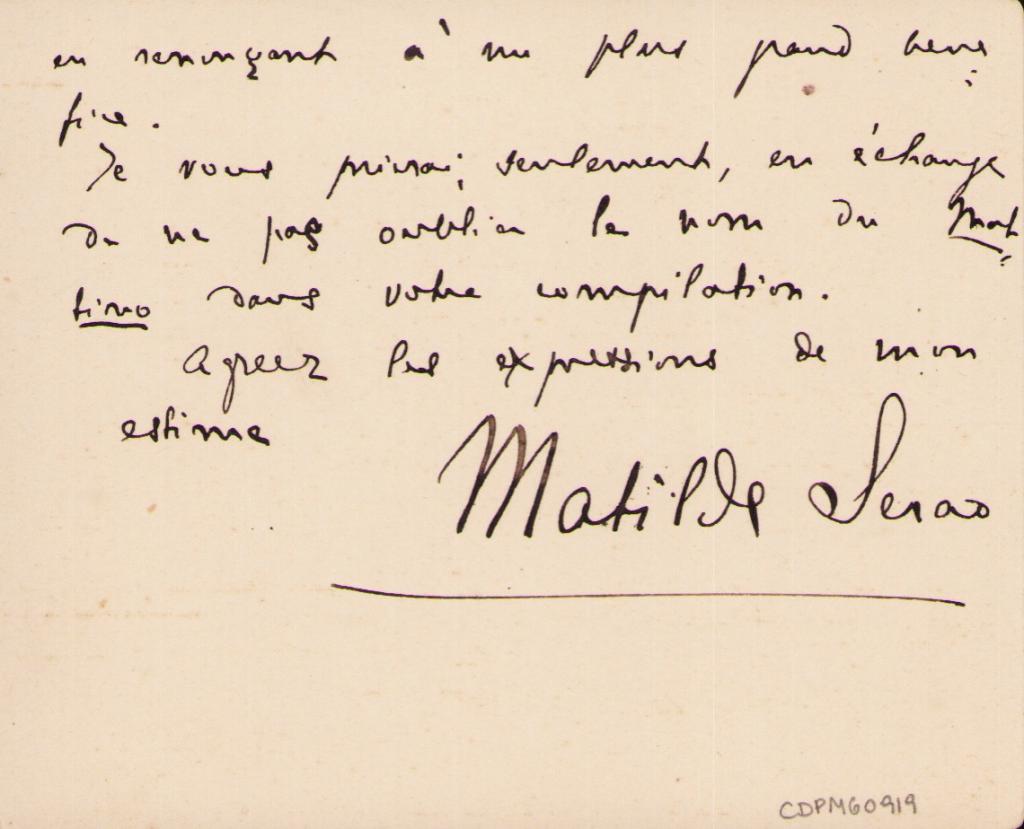 en renonçant à un plus grand bene
fice.
Je vous prierai, seulement, en échange
de ne pas oublier le nom du Mat
tino dans votre compilation.
Agreez les expressions de mon
estime
Matilde Serao
CDPM60919